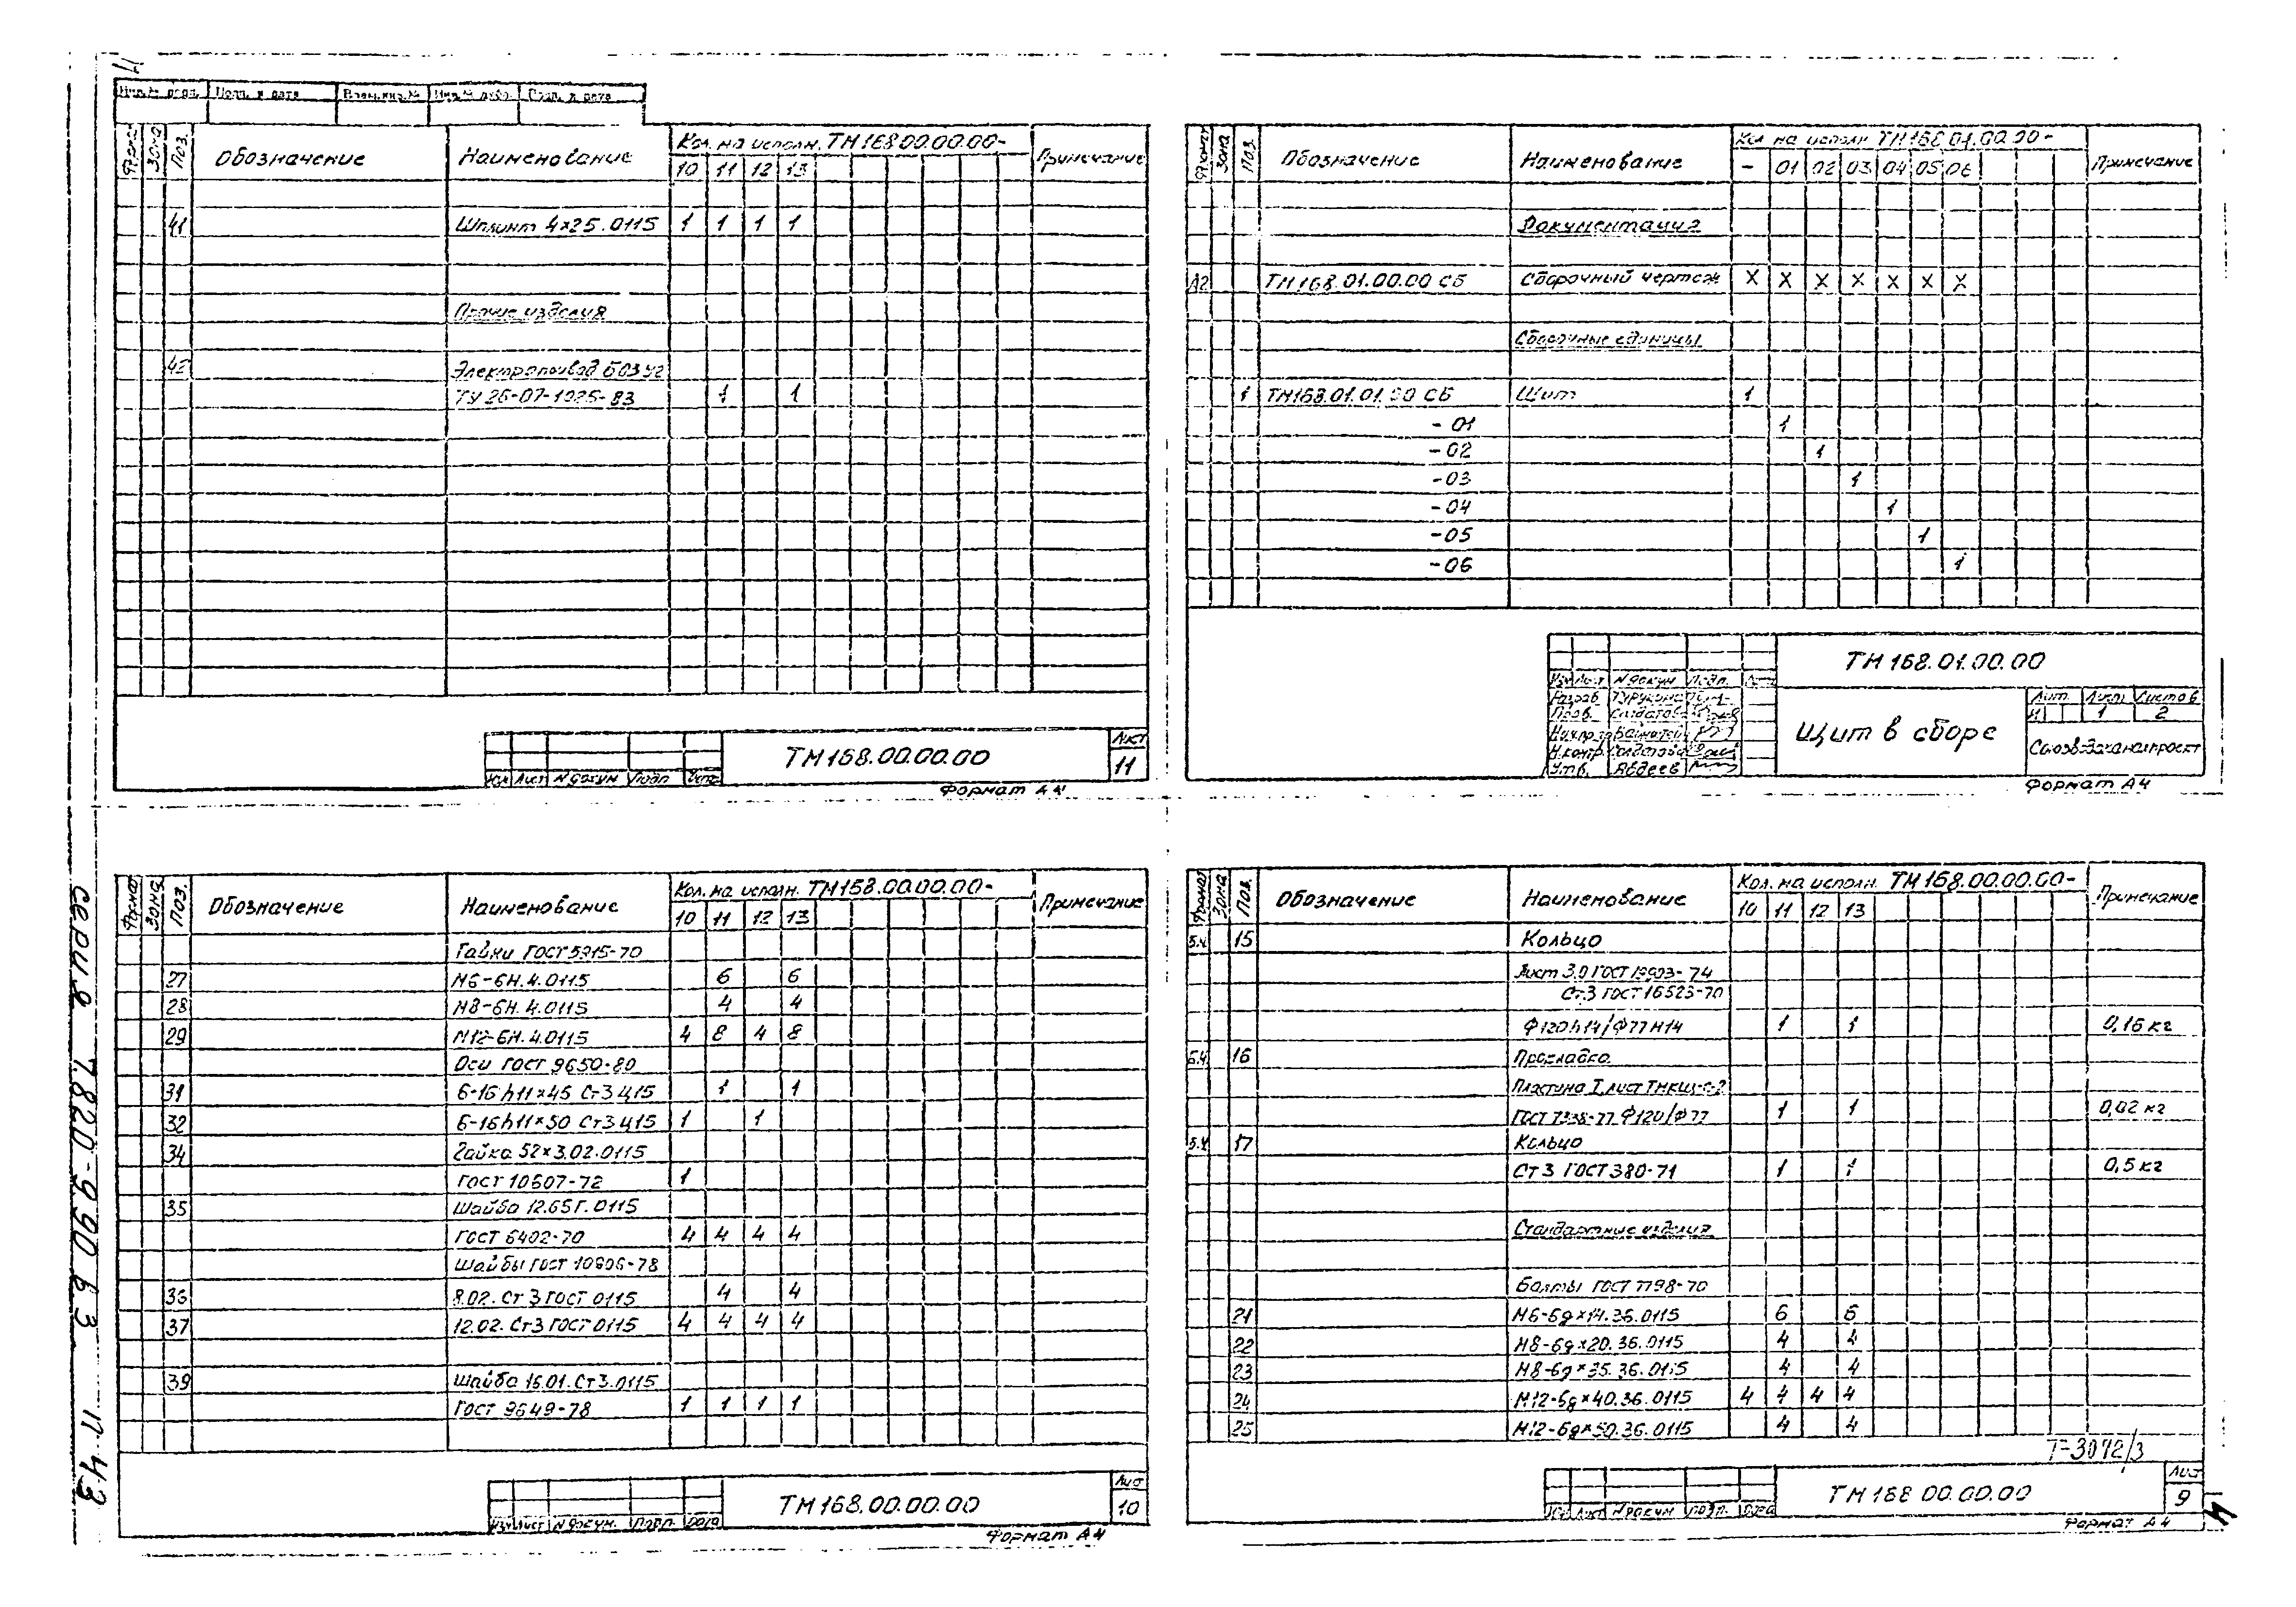 Подп. и дата
Поз.
Обозначение
Наименование
Кол. на исполн. ТМ168.00.00.00-
Примечание
10 11 12 13
41 Шплинт 4×25.0115 1 1 1 1
Прочие изделия
42 Электропривод Б03У2
ТУ 26-07-1925-83 1 1
ТМ168.00.00.00
Лист
11
Изм Лист N докум Подп
Формат А4
Формат
Зона
Поз.
Обозначение
Наименование
Кол на исполн ТМ168.01.00.00-
Примечание
- 01 02 03 04 05 06
Документация
А2 ТМ168.01.00.00 СБ Сборочный чертеж X X X X X X X
Сборочные единицы
1 ТМ168.01.01.00 СБ Щит 1
-01 1
-02 1
-03 1
-04 1
-05 1
-06 1
ТМ168.01.00.00
Изм Лист N докум Подп.
Разраб
Пров.
Н.контр.
Утв. Авдеев
Щит в сборе
Лит. Лист Листов
И 1 2
Формат А4
Формат
Зона
Поз.
Обозначение
Наименование
Кол. на исполн. ТМ168.00.00.00-
Примечание
10 11 12 13
Гайки ГОСТ 5915-70
27 М6-6Н.4.0115 6 6
28 М8-6Н.4.0115 4 4
29 М12-6Н.4.0115 4 8 4 8
Оси ГОСТ 9650-80
31 6-16h11×45 Ст3 Ц15 1 1
32 6-16h11×50 Ст3 Ц15 1 1
34 Гайка 52×3.02.0115
ГОСТ 10607-72 1
35 Шайба 12.65Г.0115
ГОСТ 6402-70 4 4 4 4
Шайбы ГОСТ 10906-78
36 8.02. Ст 3 ГОСТ 0115 4 4
37 12.02. Ст3 ГОСТ 0115 4 4 4 4
39 Шайба 16.01.Ст3.0115
ГОСТ 9649-78 1 1 1 1
ТМ168.00.00.00
Лист
10
Изм Лист N докум. Подп. Дата
Формат А4
Формат
Зона
Поз.
Обозначение
Наименование
Кол. на исполн. ТМ168.00.00.00-
Примечание
10 11 12 13
Б.Ч. 15 Кольцо
Лист 3.0 ГОСТ 19903-74
Ст.3 ГОСТ 16523-70
Ф120h14/Ф77Н14 1 1 0,16 кг
Б.Ч. 16 Прокладка
Пластина I, лист ТМКЩ-С-2
ГОСТ 7338-77 Ф120/Ф77 1 1 0,02 кг
Б.Ч. 17 Кольцо
Ст 3 ГОСТ 380-71 1 1 0,5 кг
Стандартные изделия
Болты ГОСТ 7798-70
21 М6-6g×14.36.0115 6 6
22 М8-6g×20.36.0115 4 4
23 М8-6g×35.36.0115 4 4
24 М12-6g×40.36.0115 4 4 4 4
25 М12-6g×50.36.0115 4 4
Т-3072/3
ТМ168 00.00.00
Лист
9
Изм Лист N докум Подп. Дата
Формат А4
серия 7.820-9.90 в 3 п 43
4